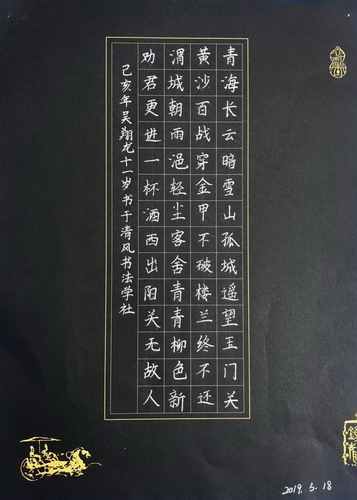 青海长云暗雪山孤城遥望玉门关
黄沙百战穿金甲不破楼兰终不还
渭城朝雨浥轻尘客舍青青柳色新
劝君更进一杯酒西出阳关无故人
己亥年吴翔龙十一岁书于清风书法学社
2019.5.18